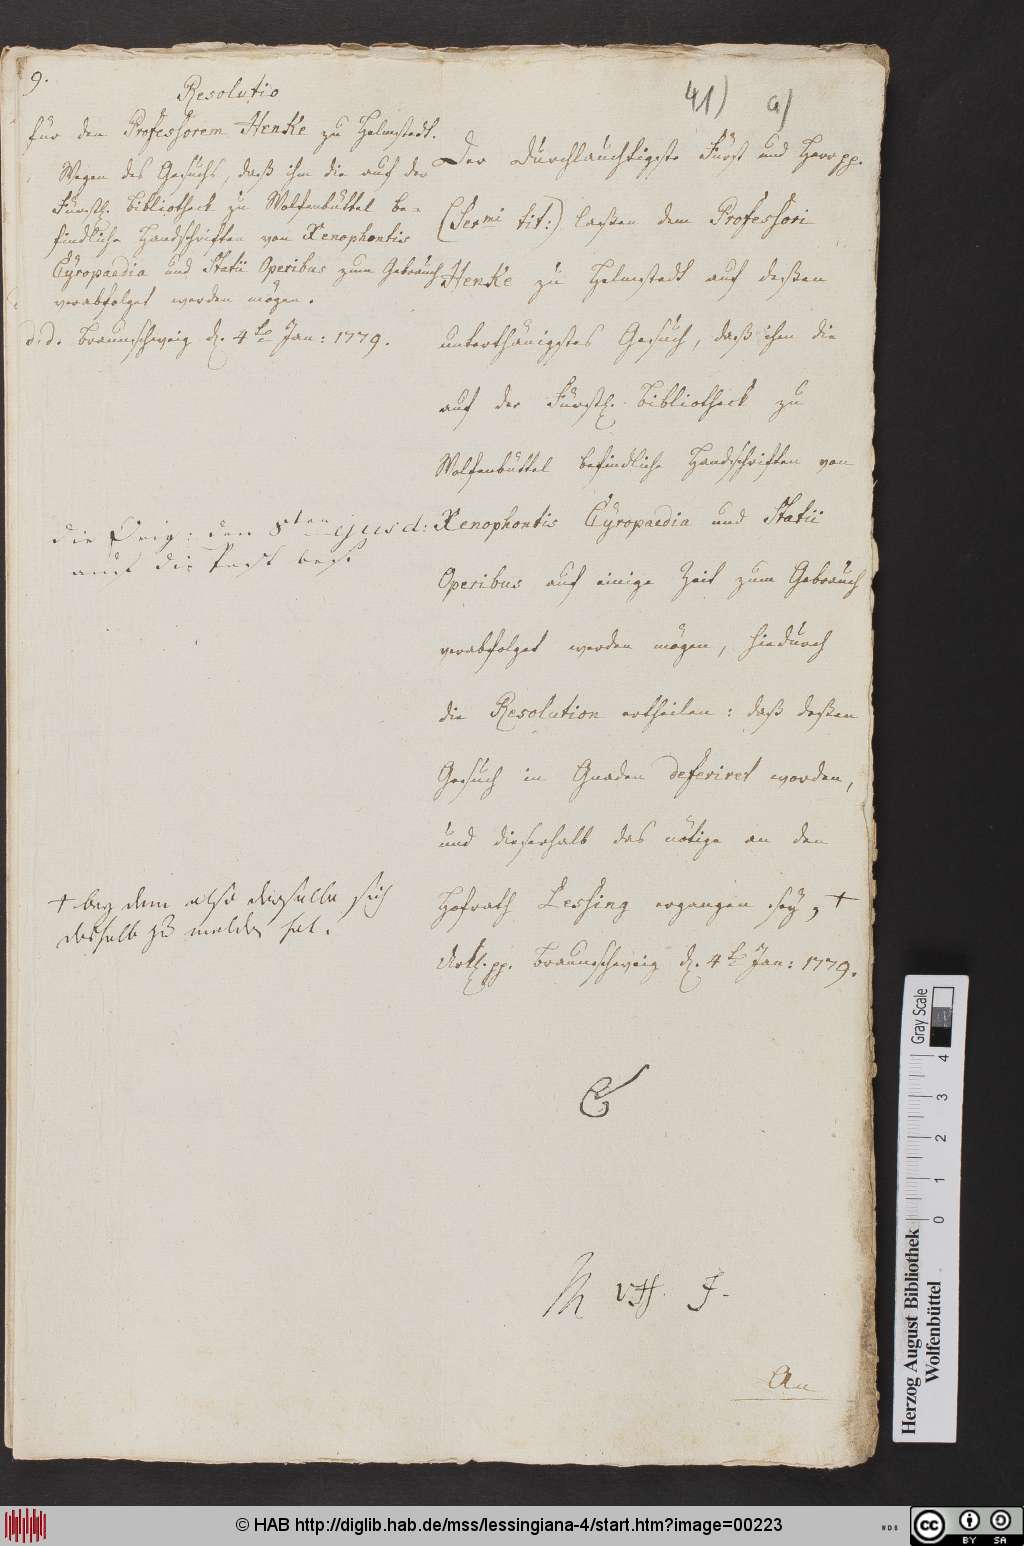 9.
Resolutio
für den Professorem Henke zu Helmstedt.
Wegen des Gesuchs, daß ihm die auf der
Fürstl. Bibliotheck zu Wolfenbüttel be-
findliche Handschriften von Xenophontis
Cyropaedia und Statii Operibus zum Gebrauch
verabfolget werden mögen.
d. d. Braunschweig d. 4te Jan: 1779.
die Orig: den 8ten ejusd:
auf die Post
† bey dem also derselbe sich
deshalb zu melden hat.
41) a)
Der Durchlauchtigste Fürst und Herr pp.
(Sermi tit:) laßen dem Professori
Henke zu Helmstedt auf deßen
unterthänigstes Gesuch, daß ihm die
auf der Fürstl. Bibliotheck zu
Wolfenbüttel befindliche Handschriften von
Xenophontis Cyropaedia und Statii
Operibus auf einige Zeit zum Gebrauch
verabfolget werden mögen, hiedurch
die Resolution ertheilen: daß deßen
Gesuch in Gnaden deferiret worden,
und dieserhalb das nötige an den
Hofrath Lessing ergangen sey, †
Urkl. pp. Braunschweig d. 4te Jan: 1779.
C
M v H. F.
An
Gray Scale
0 1 2 3 4
Herzog August Bibliothek
Wolfenbüttel
© HAB http://diglib.hab.de/mss/lessingiana-4/start.htm?image=00223
WDB
cc BY SA